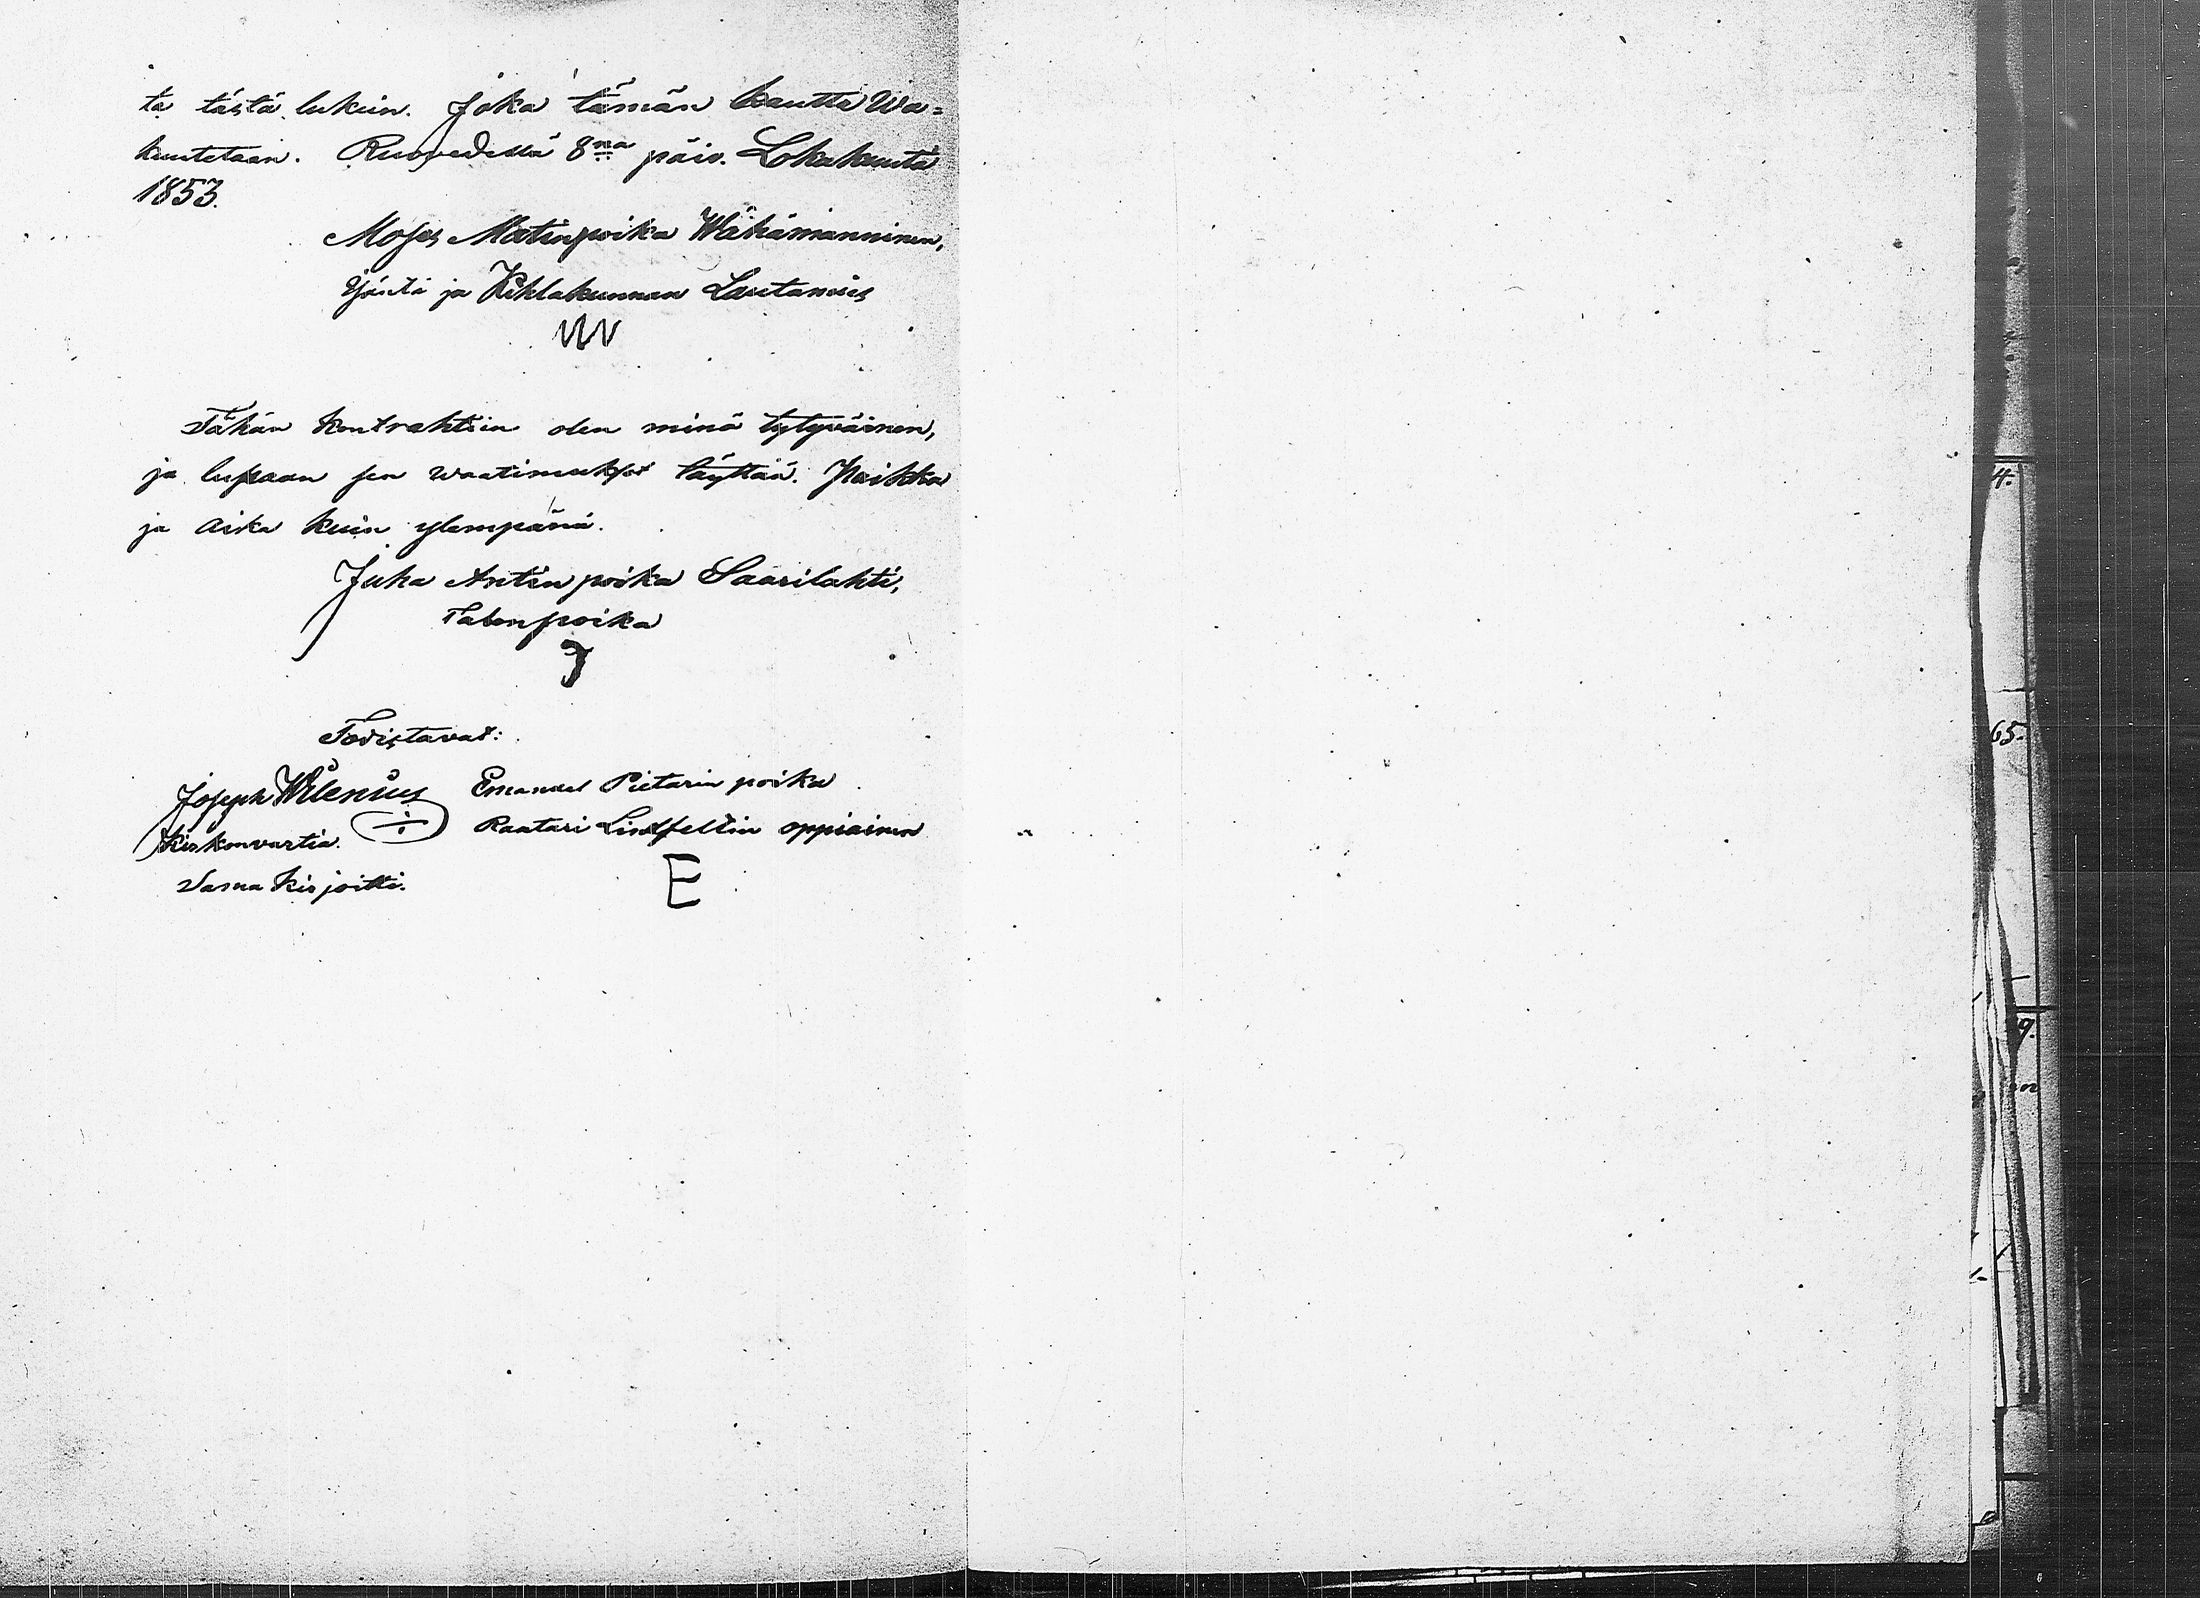 ta tästä lukein. Joka tämän kautta Wa=
kuutetaan. Ruovedellä 8na päiv. Lokakuuta
1853.
Moses Matinpoika Wähämanninen,
Isäntä ja Kihlakunnan Lautamies
Tähän kontrahtiin olen minä tytyväinen,
ja lupaan sen waatimukset täyttää. Paikka
ja aika kuin ylempänä.
Juha Antin poika Saarilahti,
Talonpoika
Todistavat:
Joseph Wilenius Emanuel Pietarin poika
Kirkonvartia. Raatari Lindfeltin oppiainen
Sama kirjoitti. E
4.
65.
9.